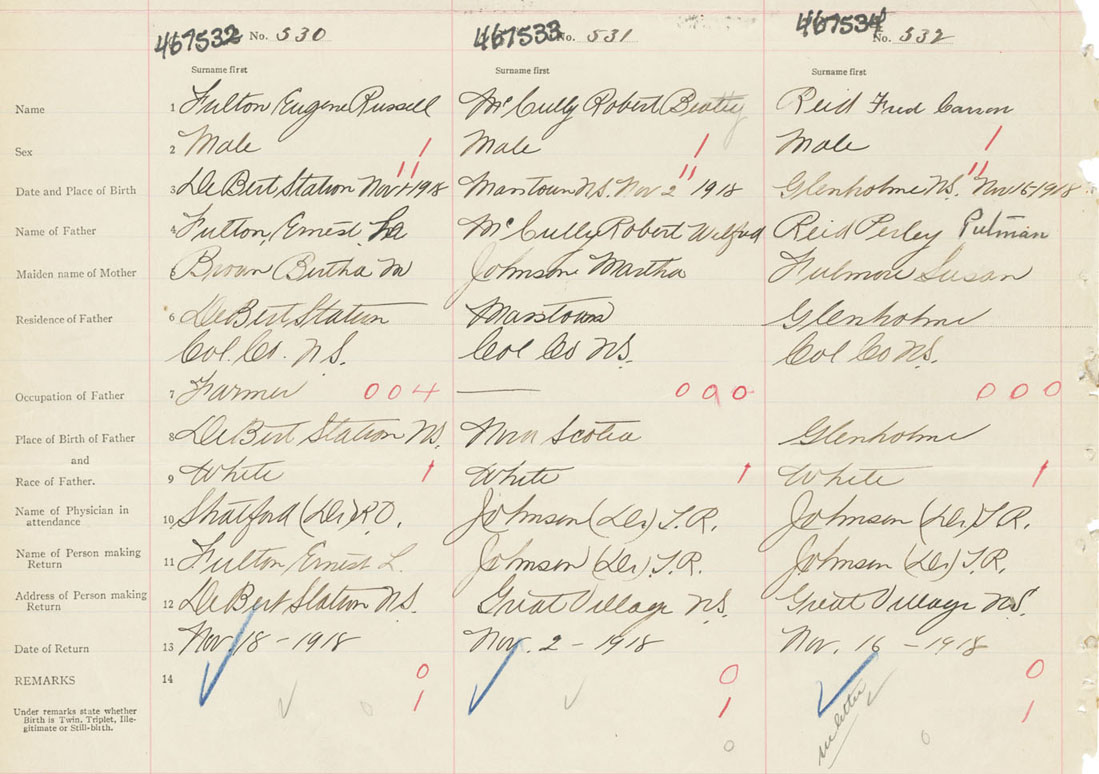 467532 No. 530 467533 No. 531 467534 No. 532
Surname first Surname first Surname first
Name 1 Fulton Eugene Russell McCully Robert Beatty Reid Fred Carson
Sex 2 Male 1 Male 1 Male 1
Date and Place of Birth 3 DeBert Station Nov 1918 11 Masstown N.S. Nov 2 1918 11 Glenholme N.S. Nov 15-1918 11
Name of Father 4 Fulton, Ernest McCully Robert Wilfred Reid Perley Putman
Maiden name of Mother 5 Brown Bertha M Johnson Martha Fulmore Susan
Residence of Father 6 DeBert Station Masstown Glenholme
Col. Co. N.S. Col Co N.S. Col Co N.S.
Occupation of Father 7 Farmer 004 — 000 000
Place of Birth of Father 8 DeBert Station N.S. Nova Scotia Glenholme
and
Race of Father. 9 White 1 White 1 White 1
Name of Physician in
attendance 10 Shatford (Dr) R.D. Johnson (Dr) T.R. Johnson (Dr) T.R.
Name of Person making
Return 11 Fulton Ernest L. Johnson (Dr). T.R. Johnson (Dr). T.R.
Address of Person making
Return 12 DeBert Station N.S. Great Village N.S. Great Village N.S.
Date of Return 13 Nov 18 - 1918 Nov. 2 - 1918 Nov. 16 - 1918
REMARKS 14 0 0 0
Under remarks state whether 1 1 1
Birth is Twin, Triplet, Ille-
gitimate or Still-birth.
0 0 0
see letter